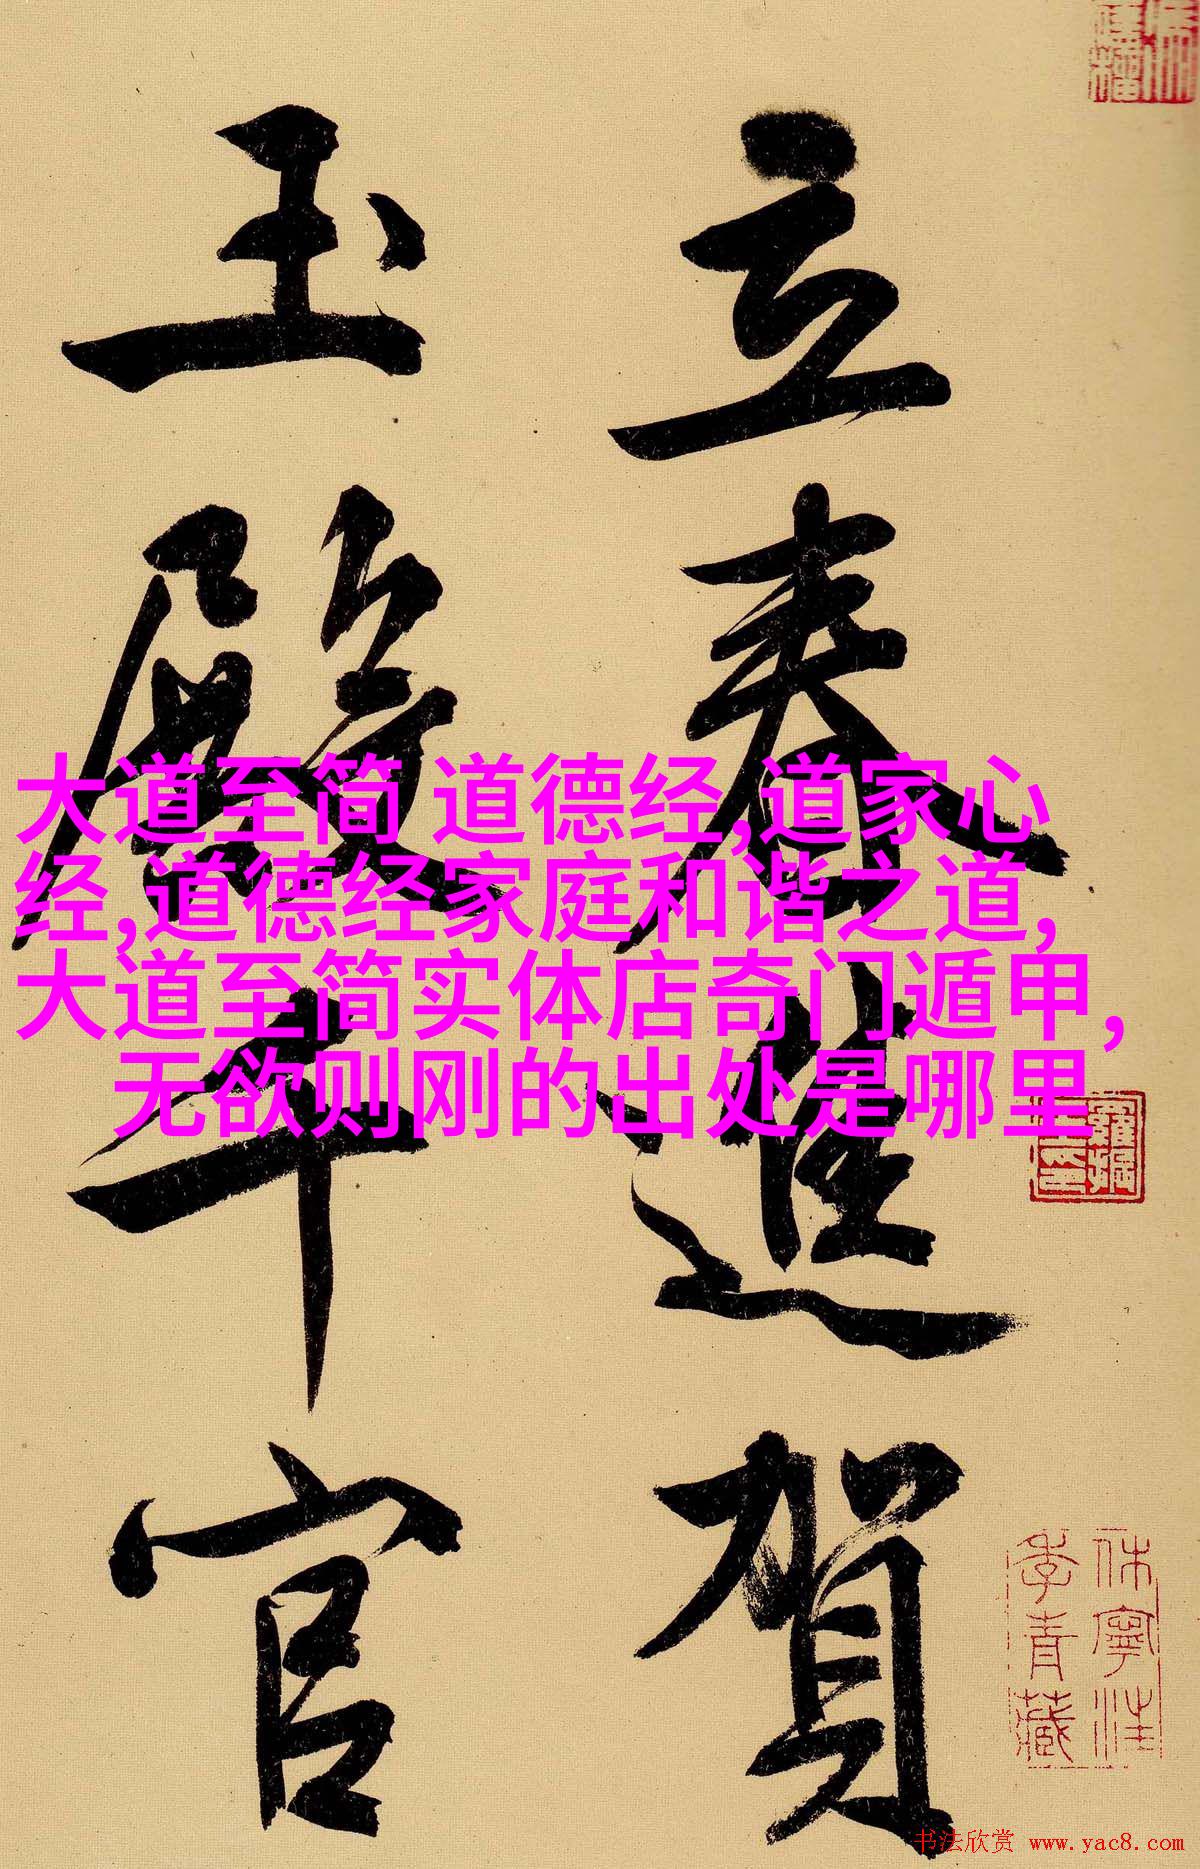 立春進賀
玉殿千官
大道至简 道德经,道家心
经,道德经家庭和谐之道,
大道至简实体店奇门遁甲,
无欲则刚的出处是哪里
休寧汪
季青藏
书法欣赏 www.yac8.com